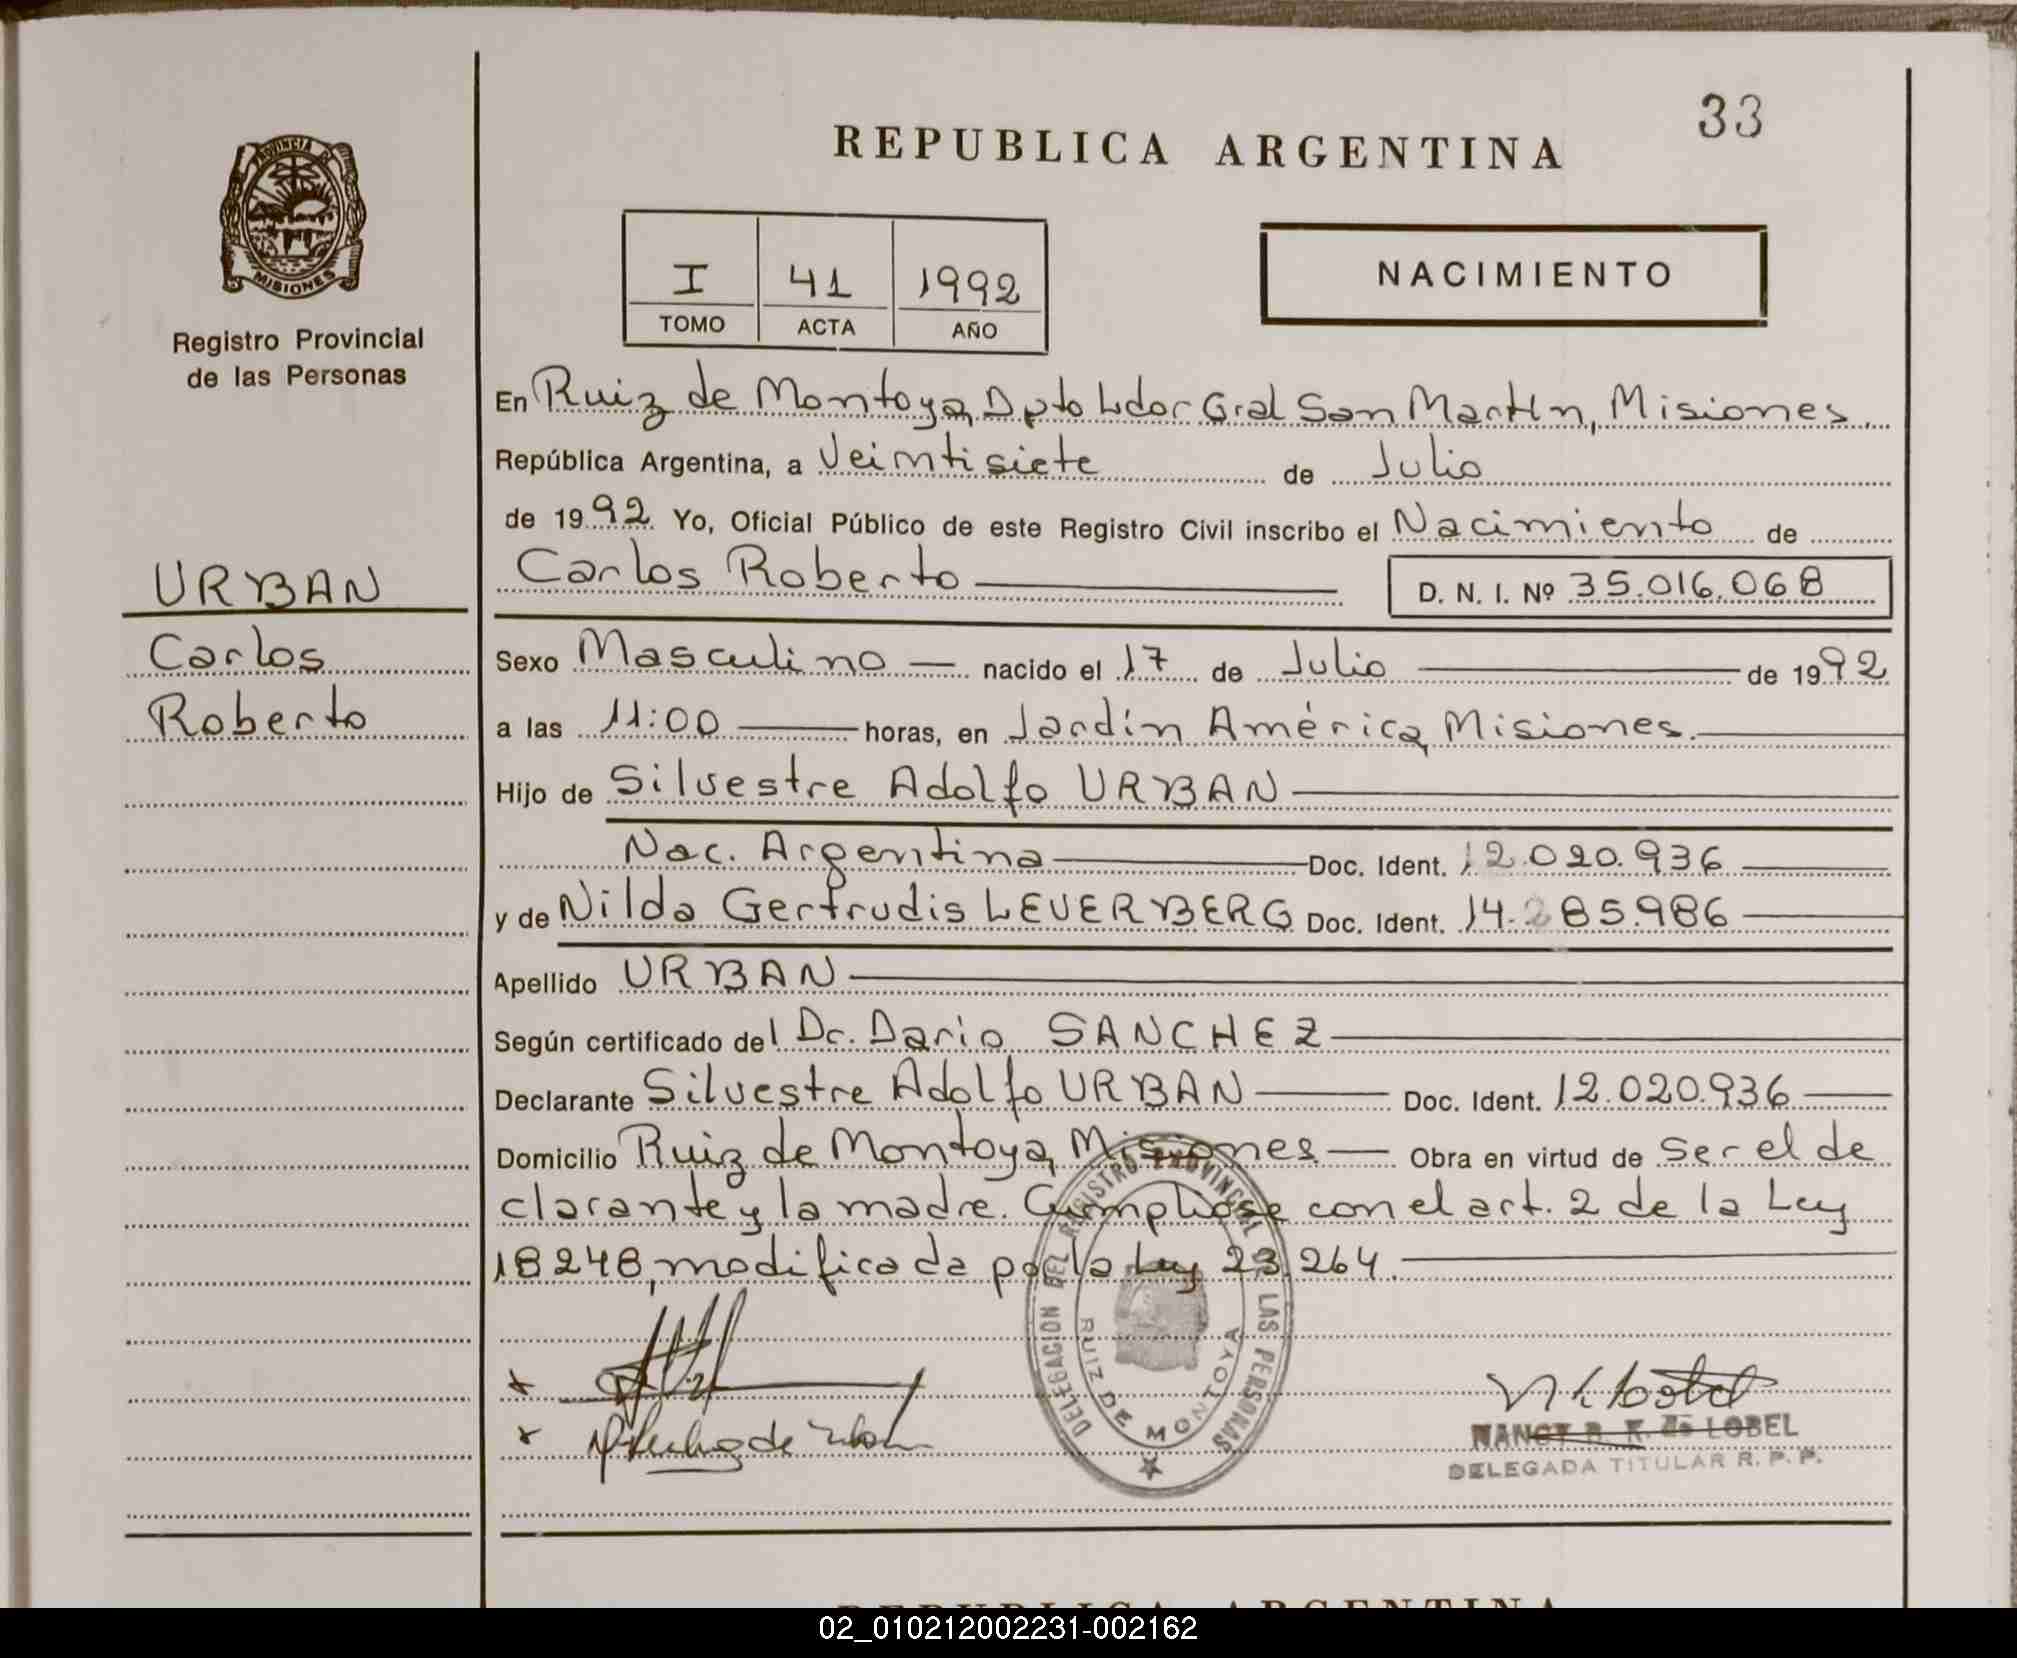 33
REPUBLICA ARGENTINA
PROVINCIA DE
MISIONES
Registro Provincial
de las Personas
I 41 1992
TOMO ACTA AÑO
NACIMIENTO
En Ruiz de Montoya, Dpto Ldor Gral San Martín, Misiones,
República Argentina, a Veintisiete de Julio
de 1992 Yo, Oficial Público de este Registro Civil inscribo el Nacimiento de
Carlos Roberto D. N. I. Nº 35.016.068
URBAN
Carlos
Roberto
Sexo Masculino nacido el 17 de Julio de 1992
a las 11:00 horas, en Jardín América, Misiones.
Hijo de Silvestre Adolfo URBAN
Nac. Argentina Doc. Ident. 12.020.936
y de Nilda Gertrudis LEVERBERG Doc. Ident. 14.285.986
Apellido URBAN
Según certificado del Dr. Dario SANCHEZ
Declarante Silvestre Adolfo URBAN Doc. Ident. 12.020.936
Domicilio Ruiz de Montoya, Misiones Obra en virtud de ser el de
clarante y la madre. Cumpliose con el art. 2 de la Ley
18248, modificada por la Ley 23.264.
DELEGACION DEL REGISTRO PROVINCIAL DE LAS PERSONAS
RUIZ DE MONTOYA
NANCY B. K. de LOBEL
DELEGADA TITULAR R. P. P.
REPUBLICA ARGENTINA
02_010212002231-002162